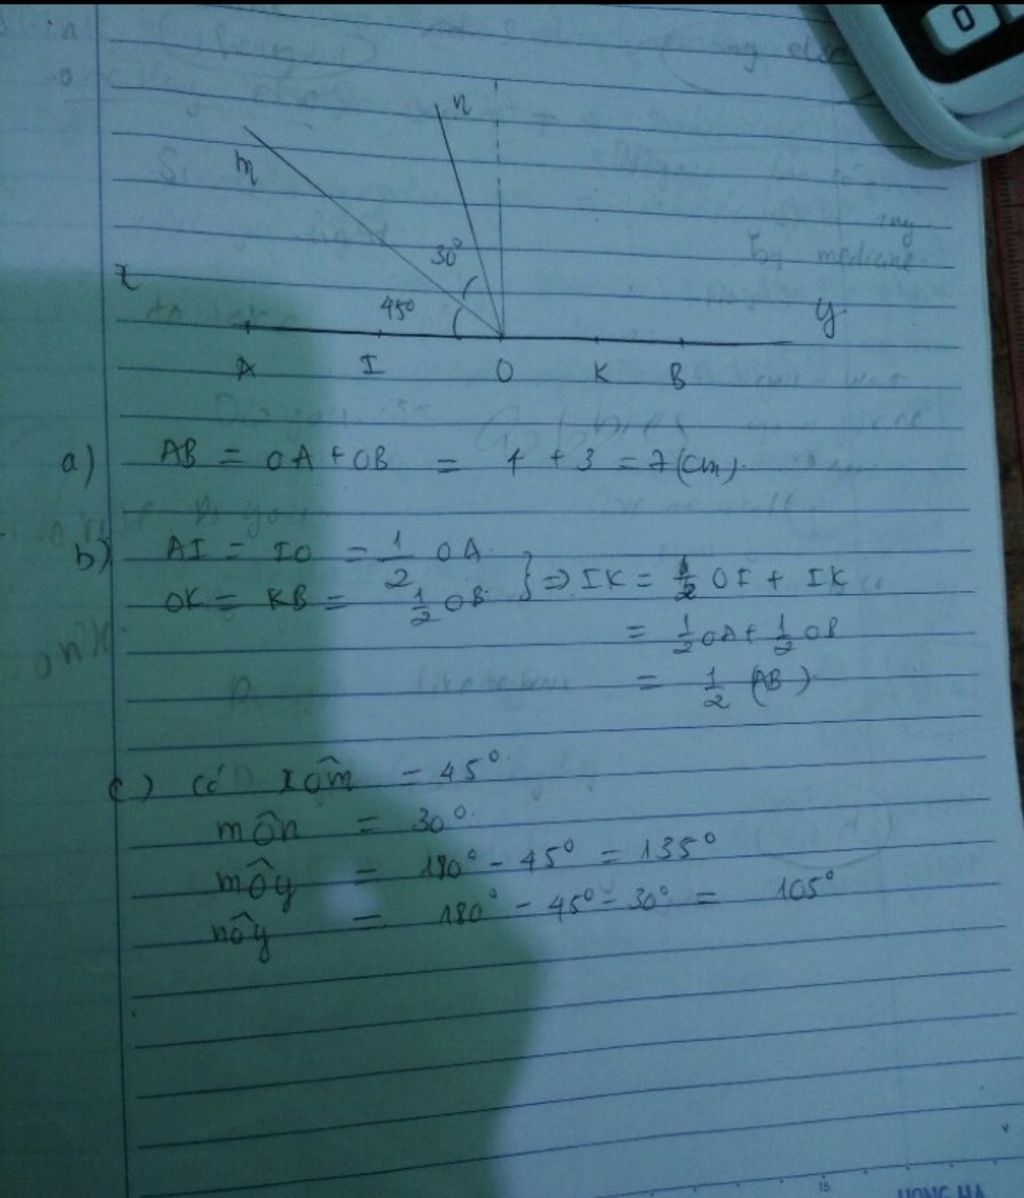 0
n
m
30°
x
45°
y
A I O K B
a) AB = OA + OB = 4 + 3 = 7 (cm).
b) AI = IO = 1/2 OA
OK = KB = 1/2 OB } => IK = 1/2 OI + IK
= 1/2 OA + 1/2 OB
= 1/2 (AB)
c) có xÔm = 45°
mÔn = 30°
mÔy = 180° - 45° = 135°
nÔy = 180° - 45° - 30° = 105°
15
HONG HA